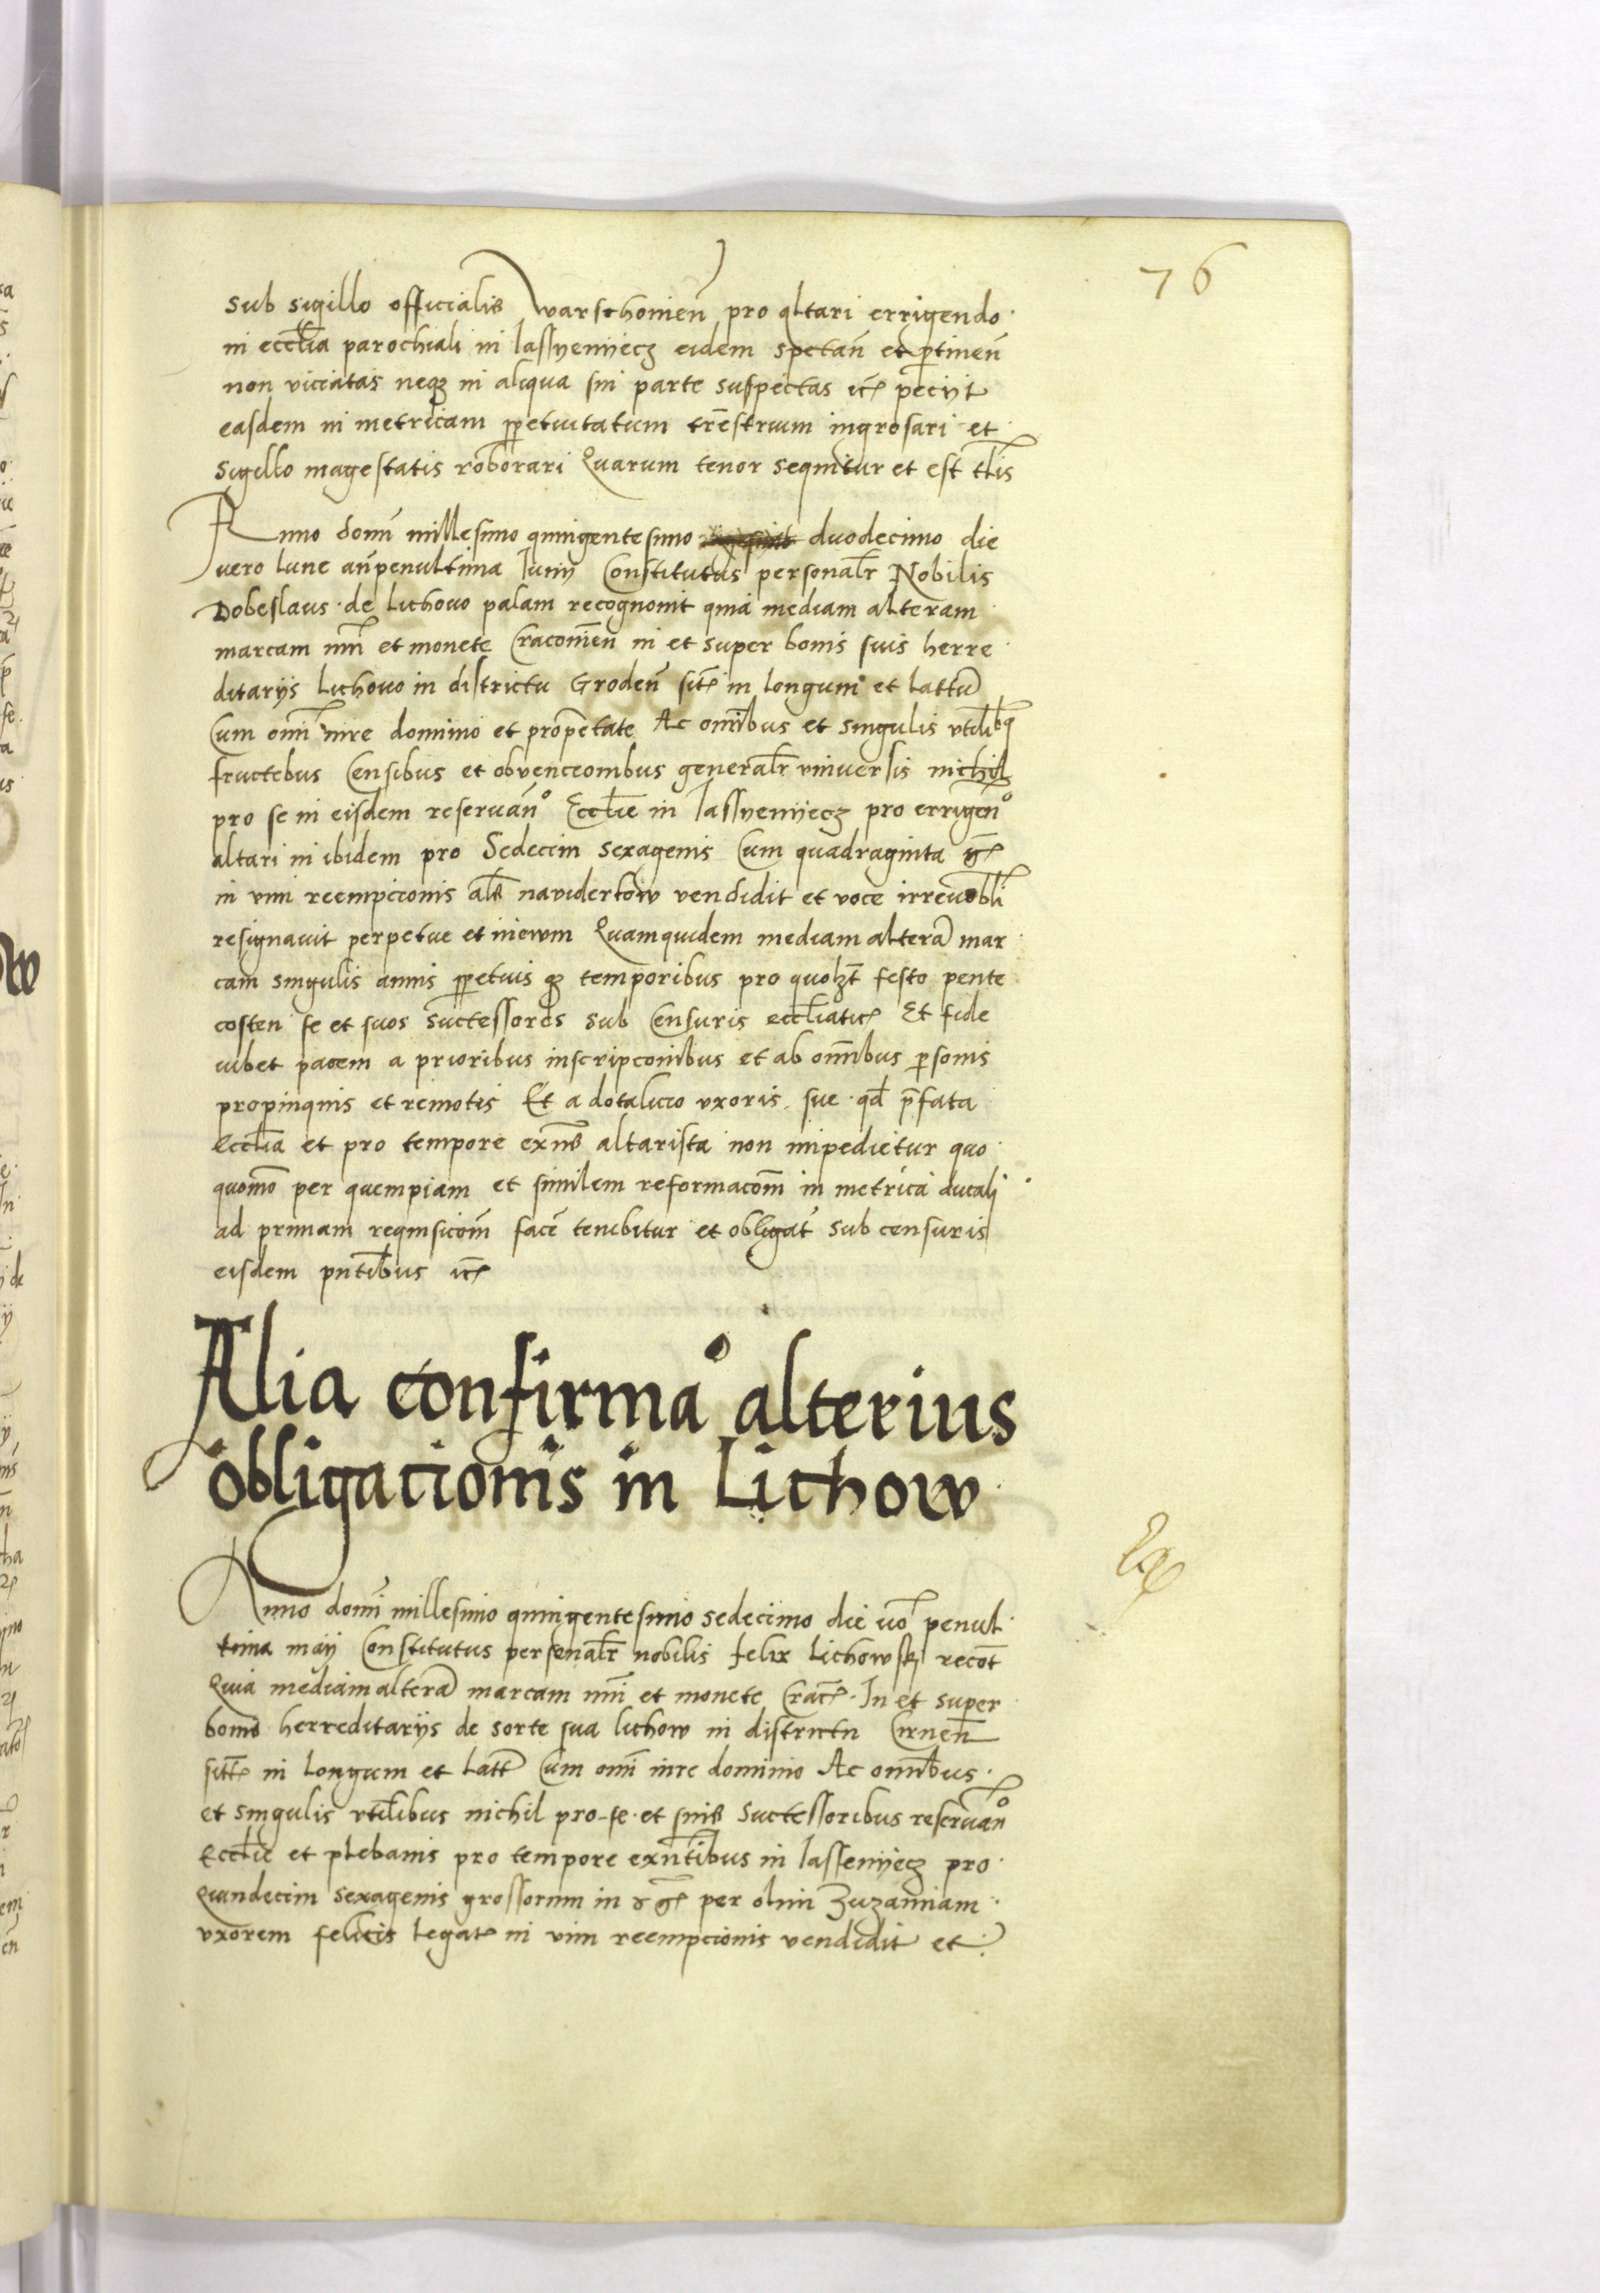 76
sub sigillo officialis warschonien̄ pro altari errigendo
in eccl̄ia parochiali in lassyenyyecz eidem spectan̄ et ptinen̄
non viciatas neqz in aliqua sui parte suspectas ic̄ peciit
easdem in metricam ppetuitatum tr̄estrium ingrosari et
sigillo magestatis roborari Quarum tenor sequitur et est tl̄is
Anno domī millesimo quingentesimo duodecimo die
vero lune an̄penultima Iunij Constitutus personalr̄ Nobilis
Dobeslaus de lichowo palam recognouit quia mediam alteram
marcam nm̄i et monete Cracouien̄ in et super bonis suis herre
ditarijs Lichowo in districtu Groden̄ sit̄ in longum et lattū
Cum omī iure dominio et propetate Ac om̄ibus et singulis vtilibq
fructebus Censibus et obvencionibus generalr̄ vniuersis nichil
pro se in eisdem reseruan̄o Eccl̄ie in lassyenyyecz pro errigen̄o
altari in ibidem pro Sedecim sexagenis Cum quadraginta gr̄
in vim reempcionis al̄s naviderkow vendidit et voce irreuobl̄i
resignauit perpetue et in ewm Quamquidem mediam alterā mar
cam singulis annis ppetuis qz temporibus pro quolz̄t festo pente
costen se et suos successores sub Censuris eccl̄iatic̄ Et fide
iubet pacem a prioribus inscripconibus et ab om̄ibus personis
propinquis et remotis Et a dotalicio vxoris sue qd̄ p̄fata
Eccl̄ia et pro tempore exn̄s altarista non impedietur quo
quomō per quempiam et similem reformacōm in metrica ducali
ad primam requisicōm facē tenebitur et obligat̄ sub censuris
eisdem pn̄tibus ic̄
Alia confirmaᵒ alterius
obligacionis in Lichow
Anno domī millesimo quingentesimo sedecimo die vō penul
tima maij Constitutus personalr̄ nobilis felix Lichowskj recōt
Quia mediam alterā marcam nm̄i et monete Crac̄ In et super
bonis herreditarijs de sorte sua lichow in districtu Cirnen̄
sitt̄ in longum et latt̄ Cum omī iure dominio Ac om̄ibus
et singulis vtilibus nichil pro se et suis successoribus reseruan̄o
Eccl̄ie et plebanis pro tempore exn̄tibus in lassenyecz pro
Quindecim sexagenis grossorum in gr̄ per olim Zuzannam
vxorem felicis legat̄ in vim reempcionis vendidit et